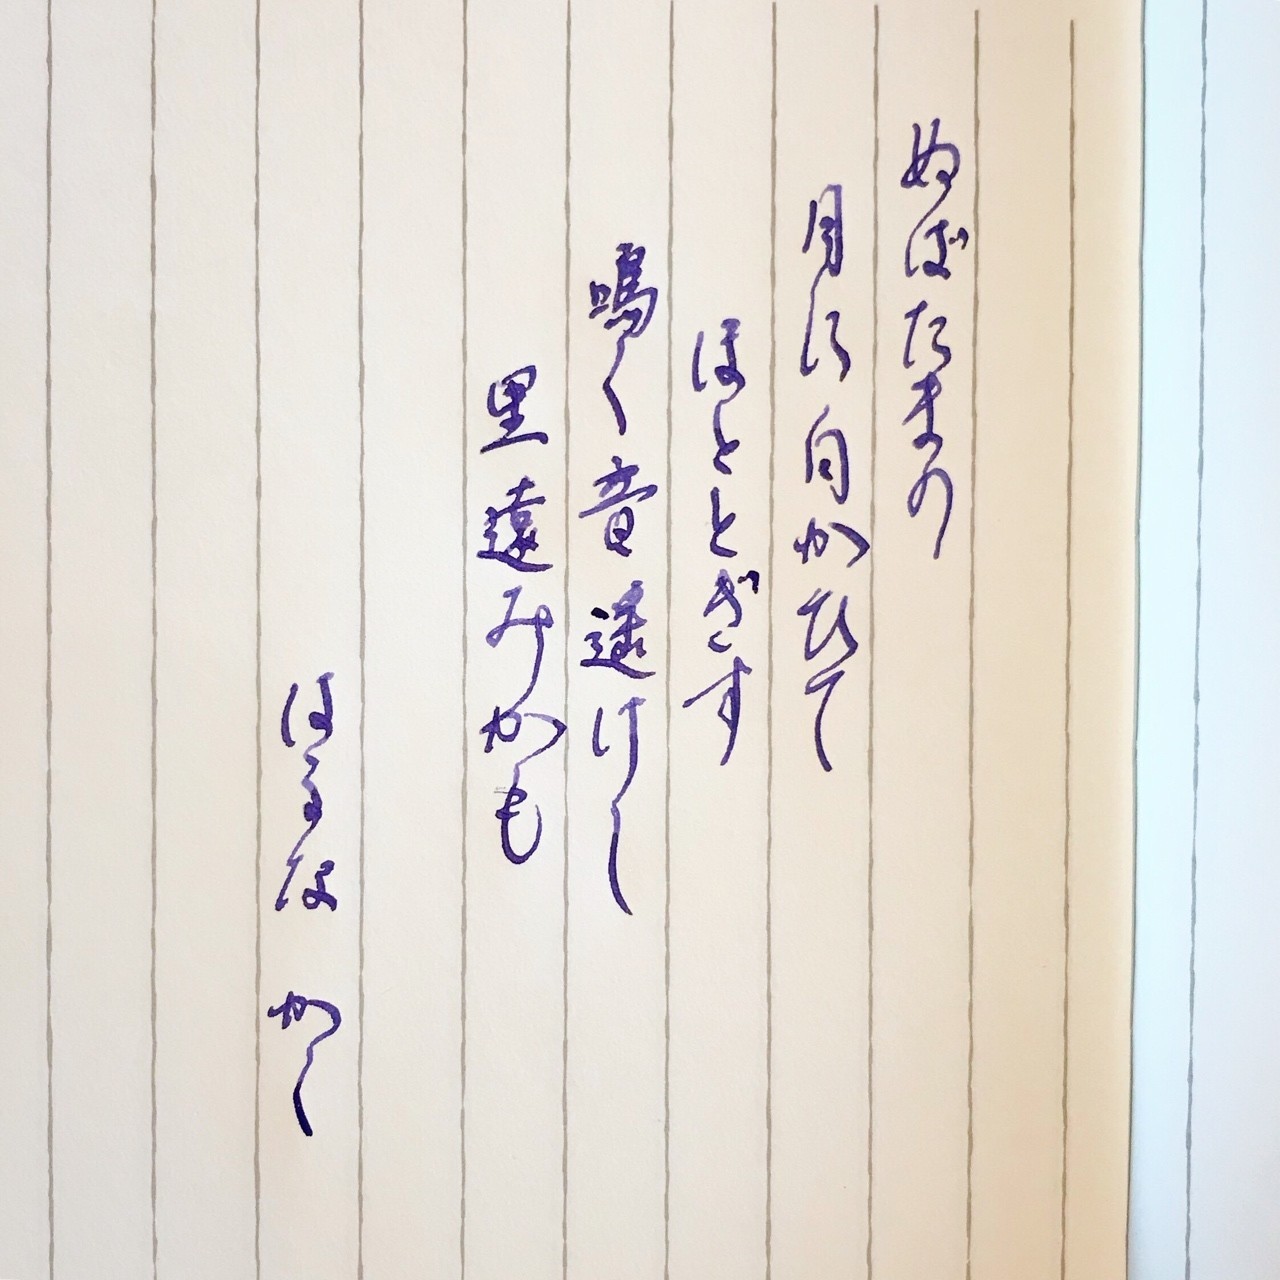 ぬばたまの
月に向かひて
ほととぎす
鳴く音遥けし
里遠みかも
はるな かし